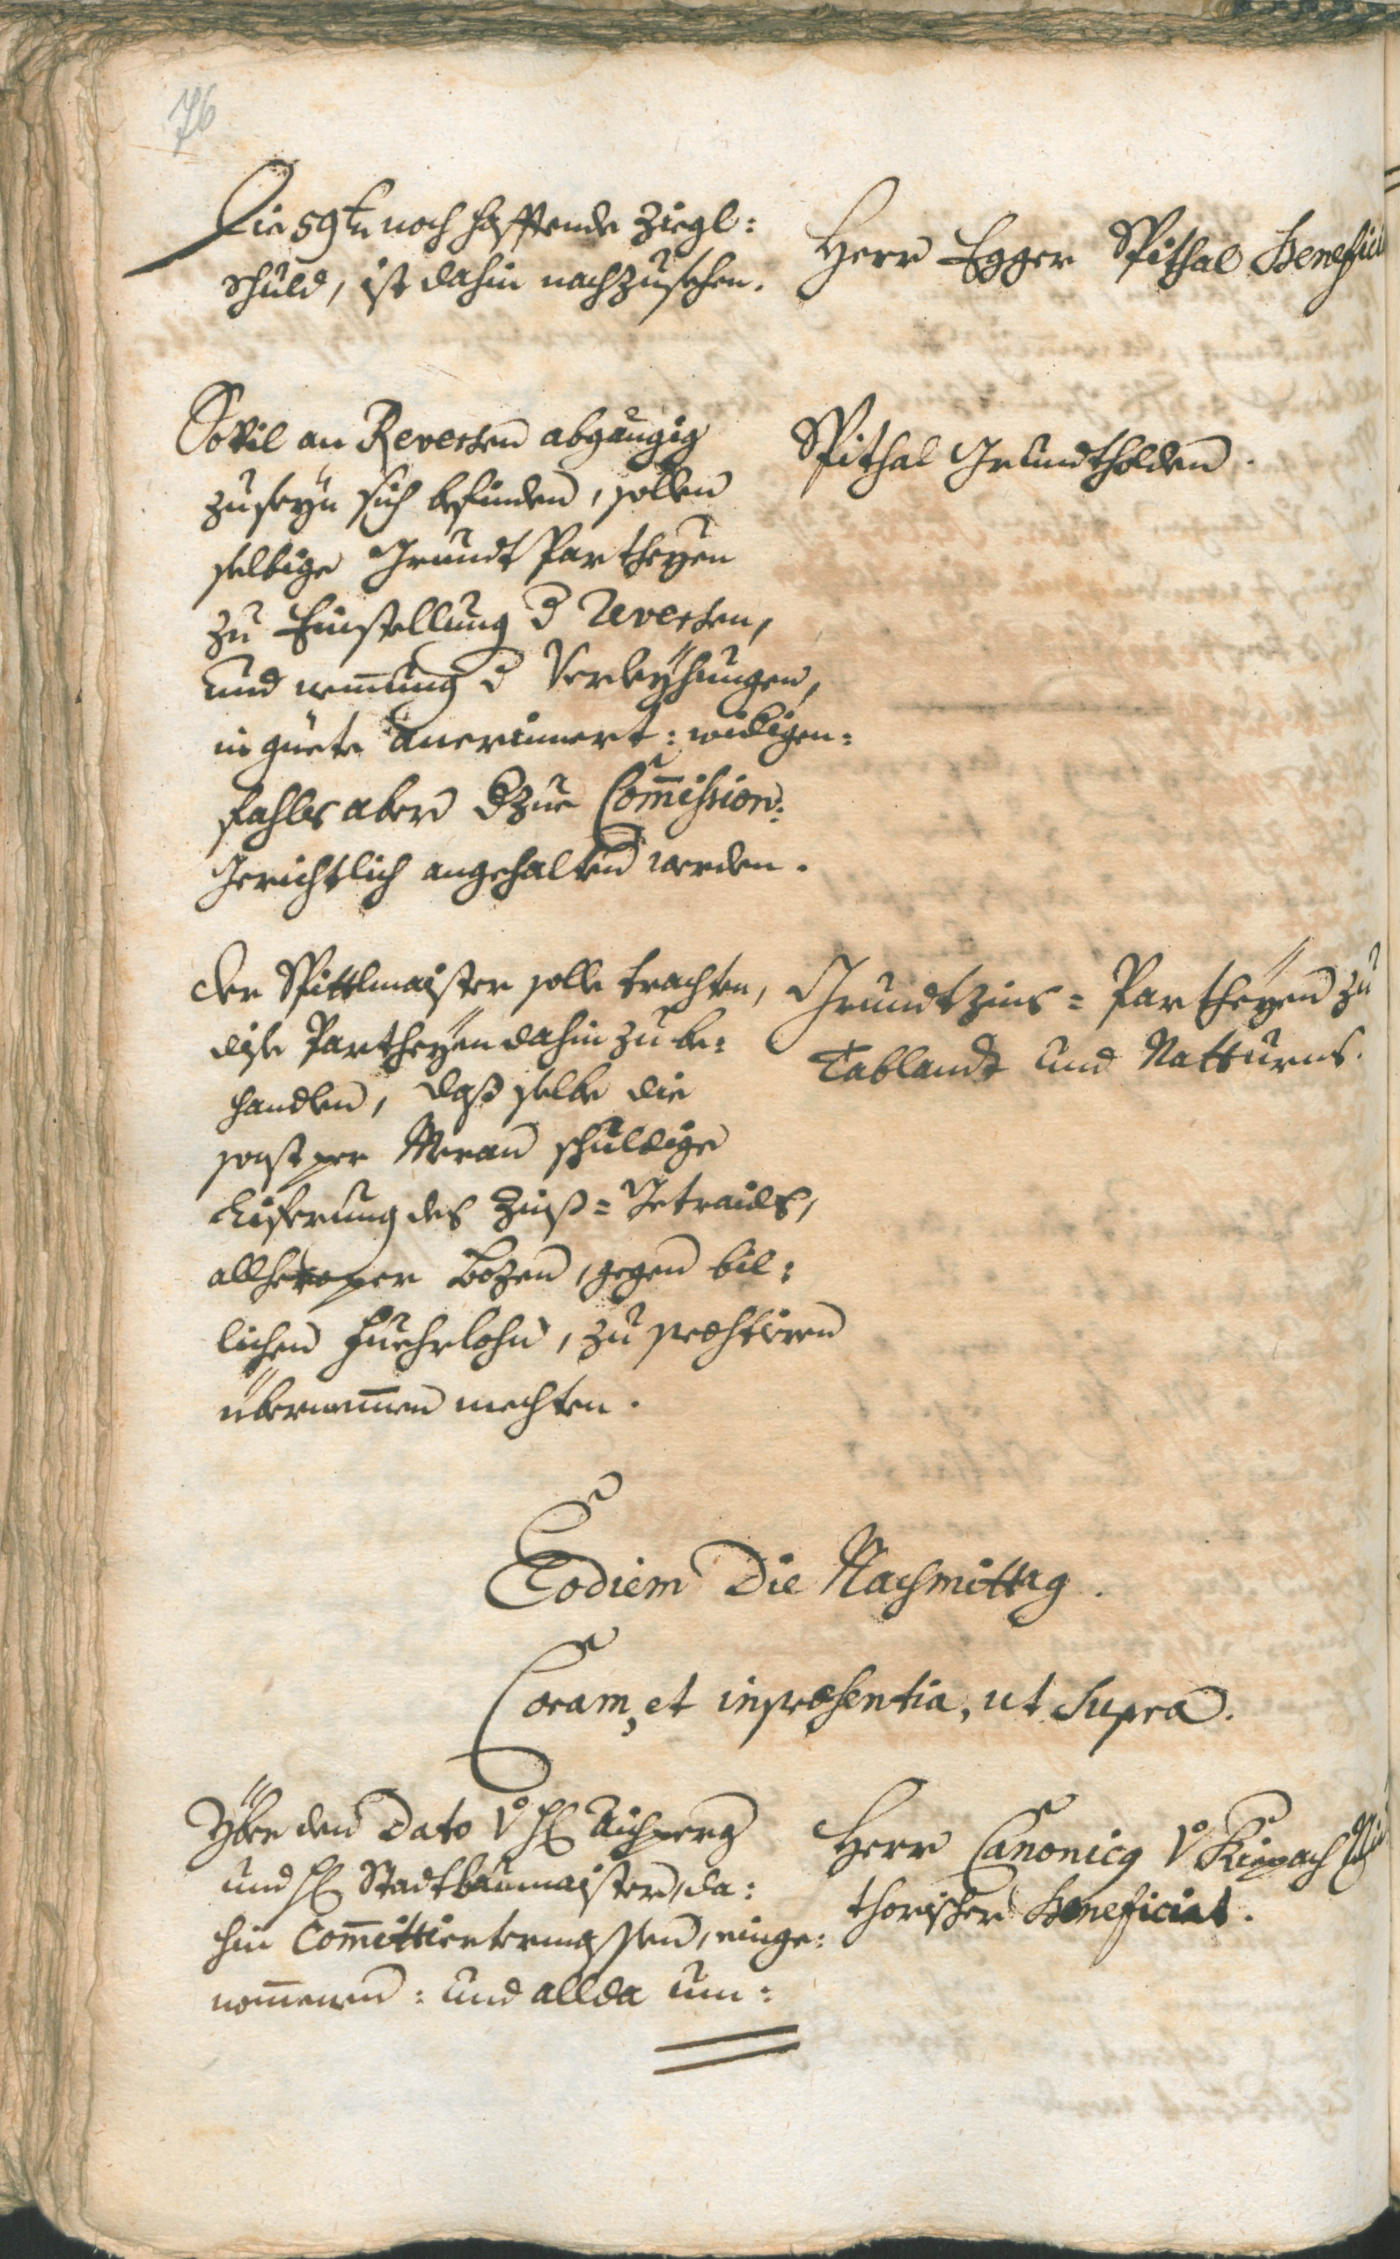 76
Die 59 noch hafftende Ziegl:
schuld, ist dahin nachzusehen.
Herr Egger Spithal Benefici
Sovil an Reversen abgängig
zuseyn sich befunden, sollen
selbige Grundt Partheyen
zu Einstellung d Reversen,
und nemung d Verleyhungen,
in güete anerinnert: widigen:
fahls aber dzue Com̄ission:
Gerichtlich angehalten werden.
Spithal Grundtholden.
Der Spittlmaister solle trachten,
dise Partheyen dahin zu be:
handlen, daß selbe die
sonst per Meran schuldige
Liferung des Zinß=Getraids,
allhero per Bozen, gegen bil:
lichen Fuehrlohn, zu præstiren
übernem̄en mechten.
Grundtzins=Partheyen zu
Tablandt und Natturns.
Eodiem Die Nachmittag.
Coram, et in præsentia, ut Supra.
Yber den Dato v H Aichperg
und H Stadtbaumaister, da:
hin Com̄ittiertermassen, einge:
nom̄enen: und allda um:
Herr Canonicq v Kiepach
thorischer Beneficiat.